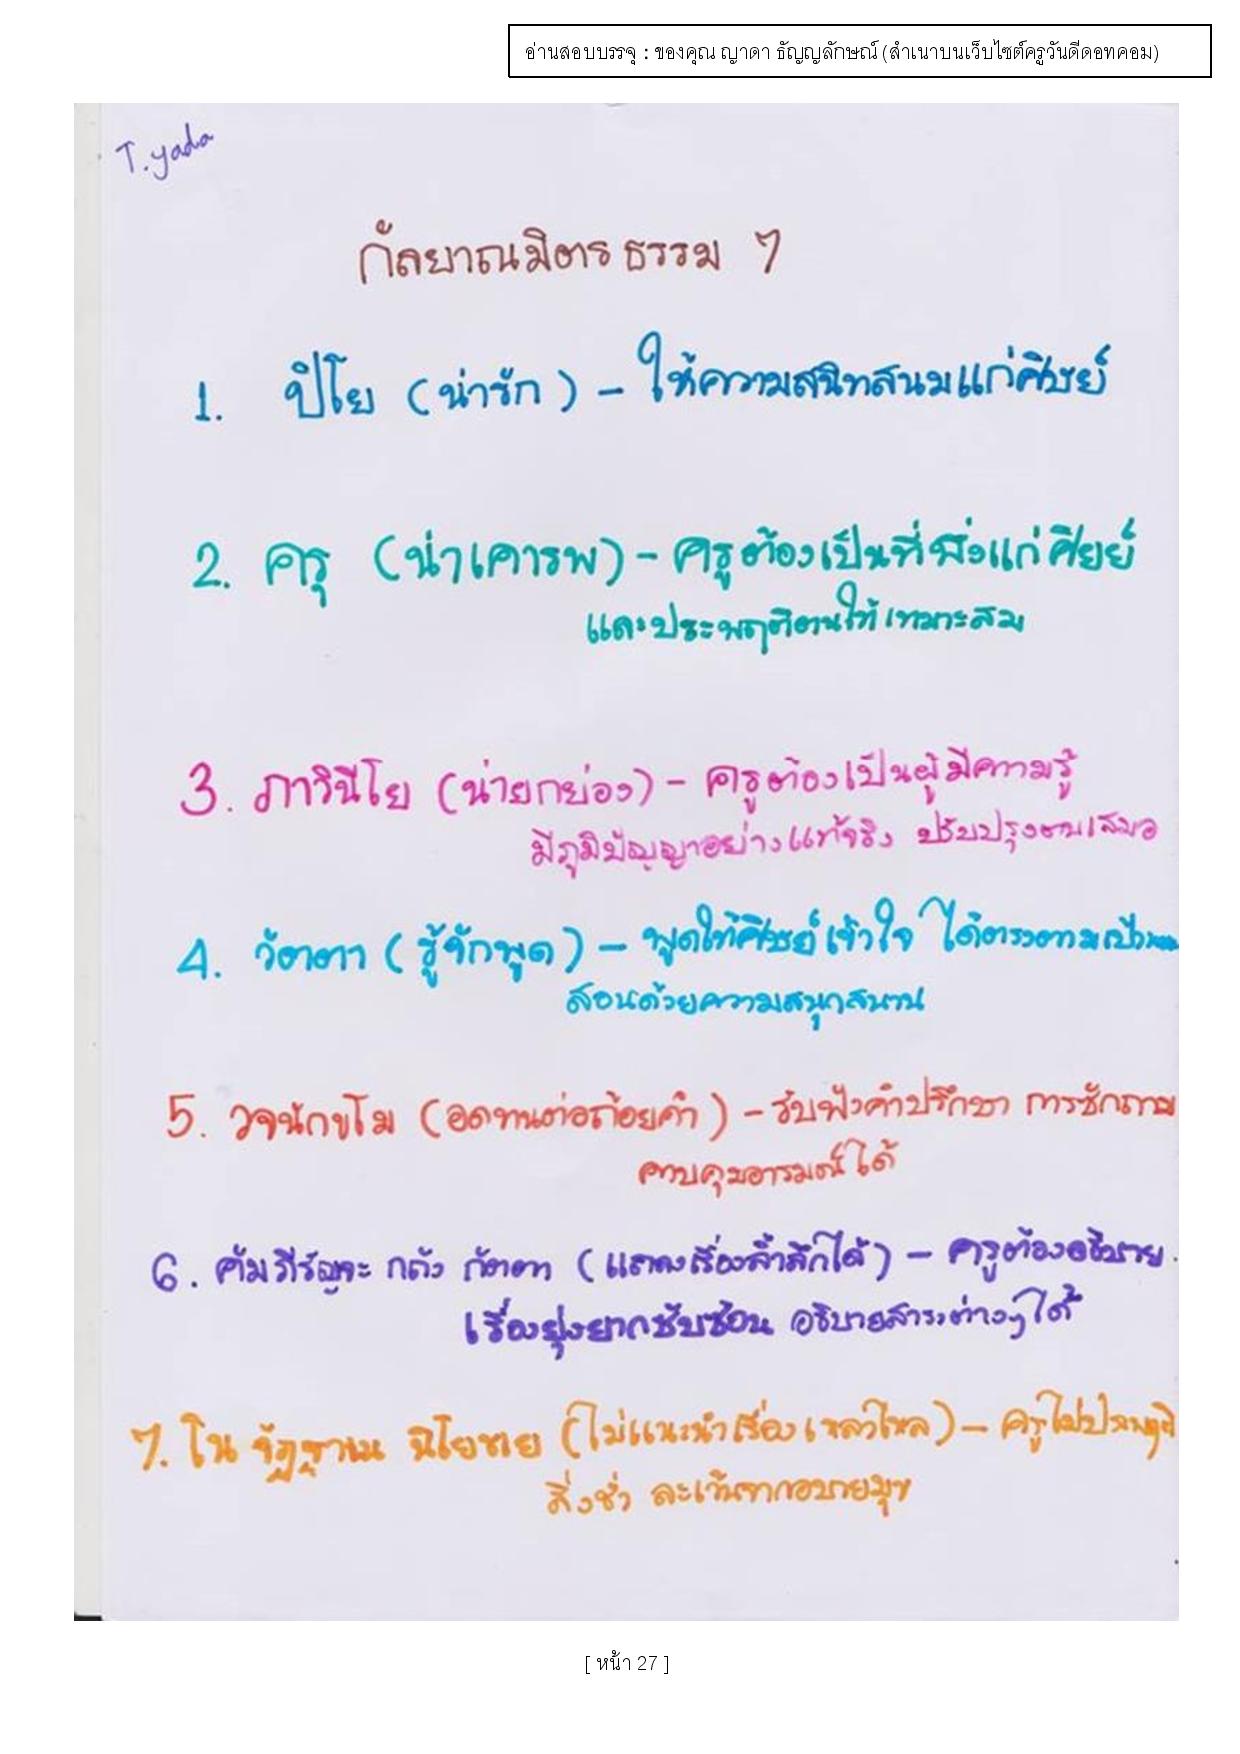 อ่านสอบบรรจุ : ของคุณ ญาดา ธัญญลักษณ์ (สำเนาบนเว็บไซต์ครูวันดีดอทคอม)
T.yada
กัลยาณมิตรธรรม 7
1. ปิโย (น่ารัก) - ให้ความสนิทสนมแก่ศิษย์
2. ครุ (น่าเคารพ) - ครูต้องเป็นที่พึ่งแก่ศิษย์
และประพฤติตนให้เหมาะสม
3. ภาวนีโย (น่ายกย่อง) - ครูต้องเป็นผู้มีความรู้
มีภูมิปัญญาอย่างแท้จริง ปรับปรุงตนเสมอ
4. วัตตา (รู้จักพูด) - พูดให้ศิษย์เข้าใจ ได้ตรงตาม
สอนด้วยความสนุกสนาน
5. วจนักขโม (อดทนต่อถ้อยคำ) - รับฟังคำปรึกษา การซักถาม
ควบคุมอารมณ์ได้
6. คัมภีรัญจะ กถัง กัตตา (แถลงเรื่องล้ำลึกได้) - ครูต้องอธิบาย
เรื่องยุ่งยากซับซ้อน อธิบายสาระต่างๆ ได้
7. โน จัฏฐาเน นิโยชเย (ไม่แนะนำเรื่องเหลวไหล) - ครูไม่ประพฤติ
สิ่งชั่ว ละเว้นจากอบายมุข
[ หน้า 27 ]